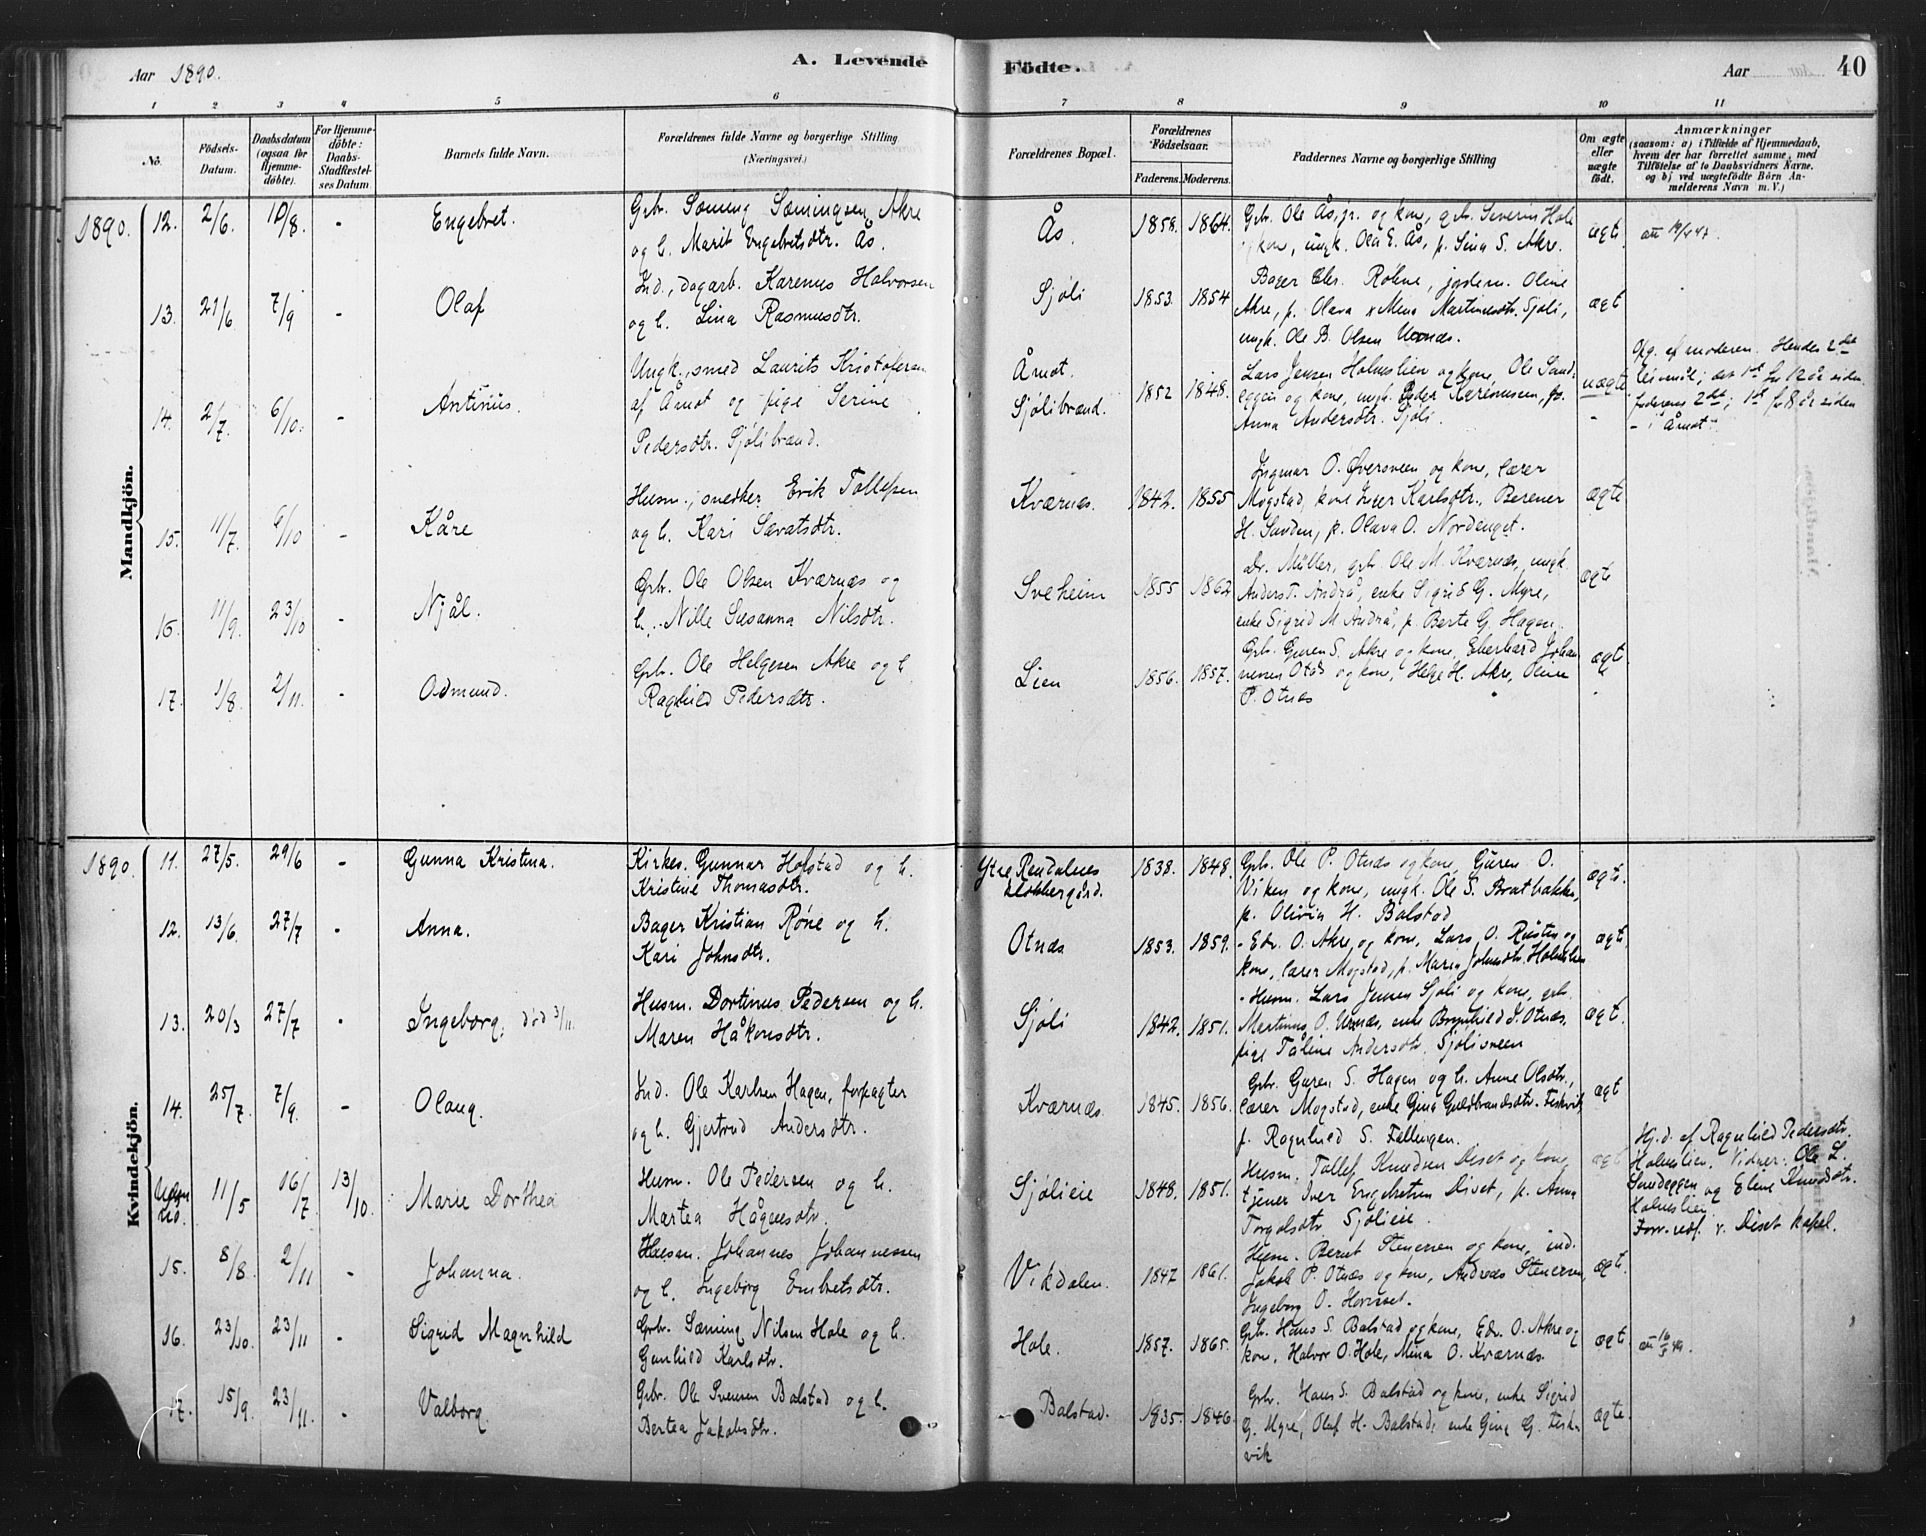 Aar 1890.
A. Levende
Födte.
Aar
40
1 2 3 4 5 6 7 8 9 10 11
No.
Födsels-
Datum.
Daabsdatum
(ogsaa för
Hjemme-
döbte).
For Hjemme-
döbte:
Daabs-
Stadfæstel-
ses Datum
Barnets fulde Navn.
Forældrenes fulde Navne og borgerlige Stilling
(Næringsvei.)
Forældrenes Bopæl.
Forældrenes
Födselsaar.
Faderens. Moderens.
Faddernes Navne og borgerlige Stilling
Om ægte
eller
uægte
födt.
Anmærkninger
(saasom: a) i Tilfælde af Hjemmedaab,
hvem der har forrettet samme, med
Tilföielse af to Daabsvidners Navne.
og b) ved uægtefödte Börn An-
melderens Navn m. V.)
Mandkjön.
1890. 12. 2/6. 10/8. - Engebret.
Gbr. Sæming Sæmingsen Akre
og h. Marit Engebretsdtr. Ås.
Ås. 1858. 1864.
Gbr. Ole Ås, jr. og kone, gbr. Severin Hole
og kone, ungk. Ola E. Ås, p. Lina S. Akre.
ægte
13. 21/6 7/9 - Olaf
Ind., dagarb. Karenus Halvorsen
og h. Lina Rasmusdtr.
Sjöli 1853. 1854
Bager Chr. Röhne, jordem. Oline
Akre, p. Olava & Mena Martinusdtr. Sjöli,
ungk. Ole B. Olsen Urnæs.
ægt
14. 2/7. 6/10. - Antinus.
Ungk., smed Laurits Kristofersen
af Åmot og pige Serine
Pedersdtr. Sjölibrænd.
Åmot.
Sjölibrænd. 1852 1848.
Lars Jensen Holmslien og kone, Ole Sand-
eggen og kone, ungk. Peder Karenusen, p.
Anna Andersdtr. Sjöli.
uægte
Opg. af moderen. Hendes 2det
leiermål; det 1ste for 12 år siden.
faderens 2det; 1ste for 8 år siden
- i Åmot -
15. 11/7. 6/10 - Kåre
Husm., snedker Erik Tollefsen
og h. Kari Savatsdtr.
Kværnæs. 1842. 1855
Ingmar O. Øversveen og kone, lærer
Mogstad, kone Inger Karlsdtr. Berener
H. Sanden, p. Olava O. Nordenget.
ægte
16. 11/9. 23/10 - Njål.
Gbr. Ole Olsen Kværnæs og
h. Nille Susanna Nilsdtr.
Sveheim 1855 1862
Dr. Müller, gbr. Ole M. Kværnæs, ungk.
Anders T. Andrå, enke Sigrid G. Myre,
enke Sigrid M. Andrå, p. Berte G. Hagen.
ægte
17. 1/8. 2/11. - Odmund.
Gbr. Ole Helgesen Akre og h.
Ragnhild Pedersdtr.
Lien 1856. 1857.
Gbr. Guren S. Akre og kone, Eberhard Johan
nesen Otnes og kone, Helge H. Akre, Oline
P. Otnæs
ægte
Kvindekjön.
1890. 11. 27/5. 29/6 - Gunna Kristina.
Kirkes. Gunnar Hofstad og h.
Kristine Thomasdtr.
Ytre Rendalens
klokkergård. 1838. 1848.
Gbr. Ole P. Otnæs og kone, Guren O.
Viken og kone, ungk. Ole S. Bratbakke,
p. Olivia H. Balstad
ægte.
12. 13/6. 27/7 - Anna.
Bager Kristian Röne og h.
Kari Johnsdtr.
Otnæs 1853. 1859.
- Edv. O. Akre og kone, Lars O. Rusten og
kone, lærer Mogstad, p. Maria Johnsdtr. Holmslien
ægte
13. 20/3 27/7 - Ingeborg. död 3/11.
Husm. Dortinus Pedersen og h.
Maren Håkonsdtr.
Sjöli 1842. 1851.
- Husm. Lars Jensen Sjöli og kone, gbr.
Martinus O. Urnæs, enke Brynhild J. Otnæs,
pige Tåline Andersdtr. Sjölisveen
ægt.
14. 25/7. 7/9. - Olaug.
Ind. Ole Karlsen Hagen, forpagter
og h. Gjertrud Andersdtr.
Kværnæs. 1845. 1856.
Gbr. Guren S. Hagen og h. Anne Olsdtr.,
lærer Mogstad, enke Gina Guldbrandsdtr. Fiskvik
p. Ragnhild S. Fallengen.
ægt
11/5 16/7 13/10. Marie Dorthea
Husm. Ole Pedersen og h.
Martea Hågensdtr.
Sjölieie 1848. 1851.
Husm. Tollef Knudsen Diset og kone,
tjener Iver Engebretsen Diset, p. Anna
Torgalsdtr. Sjölieie.
ægt
Hj.d. af Ragnhild Pedersdtr.
Holmslien. Vidner: Ole L.
Sandeggen og Eline Knudsdtr.
Holmslien.
Forr. red. v. Diset kapel.
15. 8/8. 2/11 - Johanna.
Husm. Johannes Johannessen
og h. Ingeborg Embretsdtr.
Vikdalen. 1847 1861.
Husm. Bernt Stenersen og kone, ind.
Jakob P. Otnæs og kone, Andreas Stenersen,
Ingeborg O. Hornset.
ægte.
16. 23/10. 23/11 - Sigrid Magnhild
Gbr. Sæming Nilsen Hole og h.
Gunhild Karlsdtr.
Hole. 1857. 1865.
Gbr. Hans S. Balstad og kone, Edv. O. Akre og
kone, Halvor O. Hole, Mina O. Kværnæs.
ægte
17. 15/9. 23/11. - Valborg.
Gbr. Ole Svensen Balstad og h.
Bertea Jakobsdtr.
Balstad. 1835. 1846.
Gbr. Hans S. Balstad og kone, enke Sigrid
G. Myre, Olaf H. Balstad, enke Gina G. Fisk-
vik
ægte.